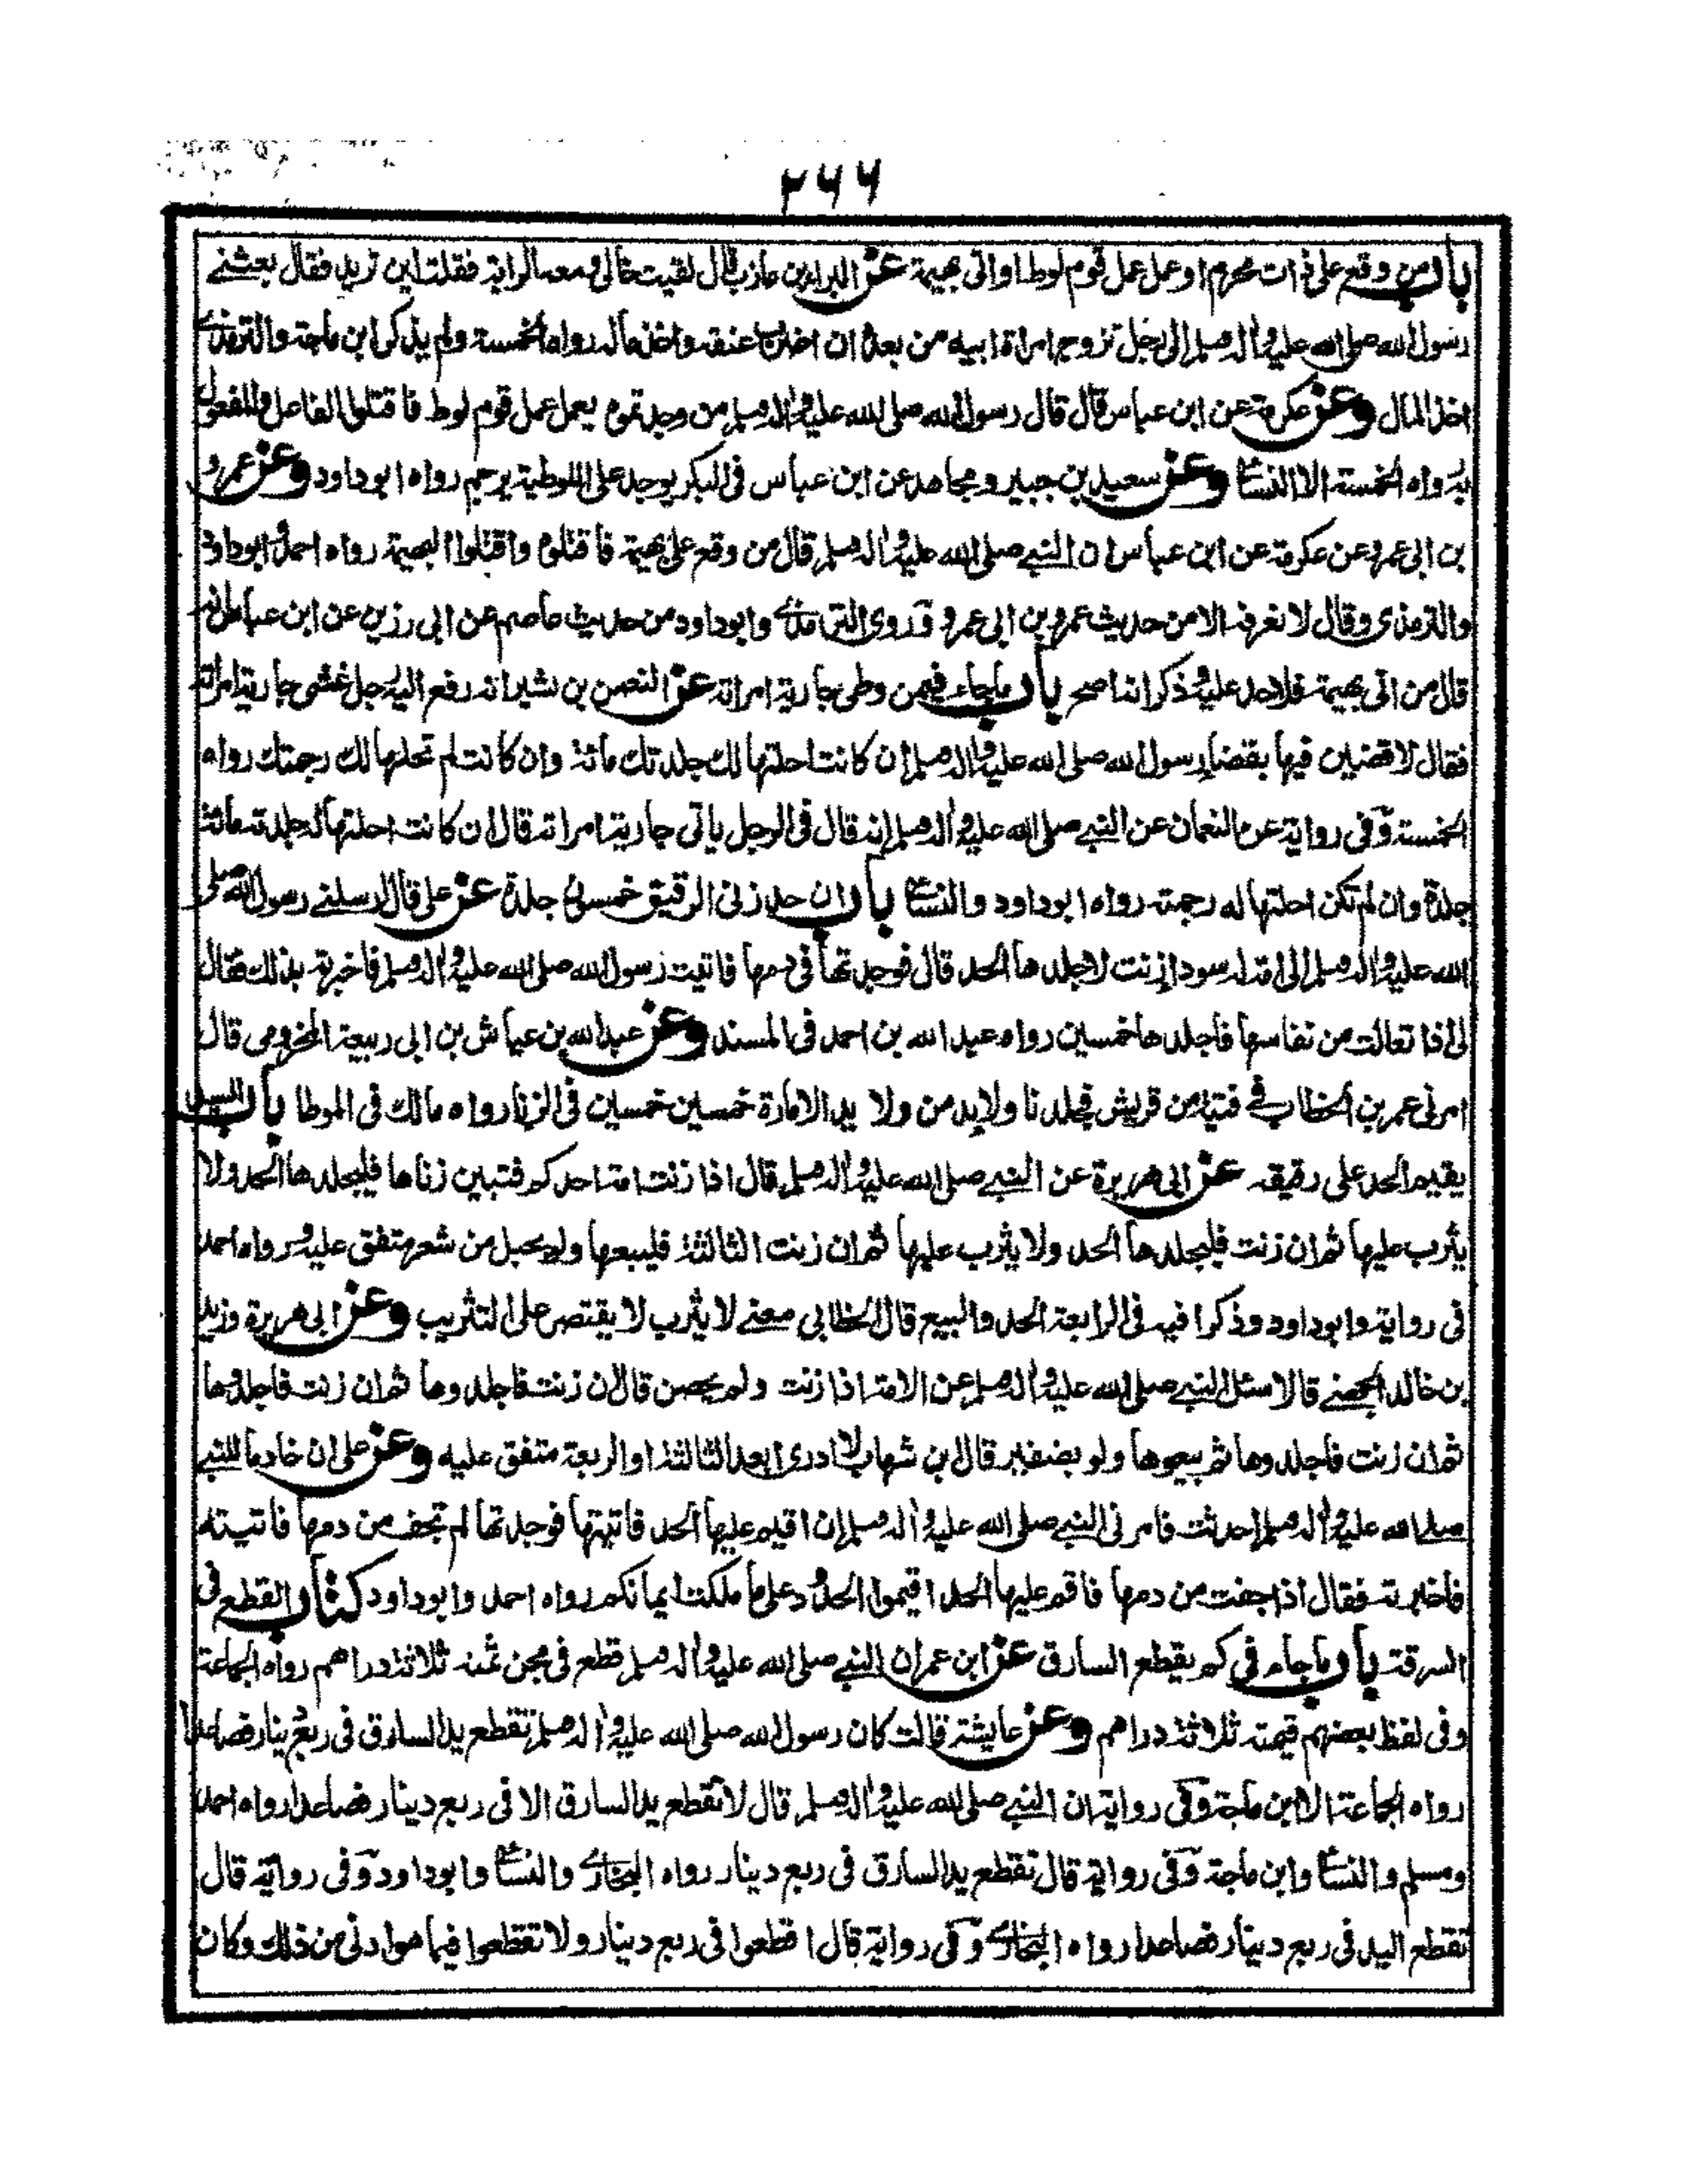 ٢٦٦
باب من وقع على ذات محرم او عمل عمل قوم لوط او اتى بهيمة عن البراء بن عازب قال لقيت خالى ومعه الراية فقلت اين تريد فقال بعثنى
رسول الله صلى الله عليه واله وسلم الى رجل تزوج امراة ابيه من بعده ان اضرب عنقه واخذ ماله رواه الخمسة ولم يذكر ابن ماجة والترمذى
اخذ المال وعن عكرمة عن ابن عباس قال قال رسول الله صلى الله عليه واله وسلم من وجدتموه يعمل عمل قوم لوط فاقتلوا الفاعل والمفعول
به رواه الخمسة الا النسائى وعن سعيد بن جبير ومجاهد عن ابن عباس فى البكر يوجد على اللوطية يرجم رواه ابو داود وعن عمرو
بن ابى عمرو عن عكرمة عن ابن عباس ان النبى صلى الله عليه واله وسلم قال من وقع على بهيمة فاقتلوه واقتلوا البهيمة رواه احمد وابو داود
والترمذى وقال لا نعرفه الا من حديث عمرو بن ابى عمرو وروى الترمذى وابو داود من حديث عاصم عن ابى رزين عن ابن عباس انه
قال من اتى بهيمة فلا حد عليه وذكر انه اصح باب ما جاء فيمن وطى جارية امراته عن النعمن بن بشير انه رفع اليه رجل غشى جارية امراته
فقال لاقضين فيها بقضاء رسول الله صلى الله عليه واله وسلم ان كانت احلتها لك جلدتك مائة وان كانت لم تحلها لك رجمتك رواه
الخمسة وفى رواية عن النعمان عن النبى صلى الله عليه واله وسلم انه قال فى الرجل ياتى جارية امراته قال ان كانت احلتها له جلدته مائة
جلدة وان لم تكن احلتها له رجمته رواه ابو داود والنسائى باب ان حد زنى الرقيق خمسون جلدة عن على قال ارسلنى رسول الله صلى
الله عليه واله وسلم الى امة له سوداء زنت لاجلدها الحد قال فوجدتها فى دمها فاتيت رسول الله صلى الله عليه واله وسلم فاخبرته بذلك فقال
لى اذا تعالت من نفاسها فاجلدها خمسين رواه عبد الله بن احمد فى المسند وعن عبد الله بن عياش بن ابى ربيعة المخزومى قال
امرنى عمر بن الخطاب فى فتية من قريش فجلدنا ولايد من ولايد الامارة خمسين خمسين فى الزنا رواه مالك فى الموطا باب السيد
يقيم الحد على رقيقه عن ابى هريرة عن النبى صلى الله عليه واله وسلم قال اذا زنت امة احدكم فتبين زناها فليجلدها الحد ولا
يثرب عليها ثم ان زنت فليجلدها الحد ولا يثرب عليها ثم ان زنت الثالثة فليبعها ولو بحبل من شعر متفق عليه ورواه احمد
فى رواية وابو داود وذكرا فيه فى الرابعة الحد والبيع قال الخطابى معنى لا يثرب لا يقتصر على التثريب وعن ابى هريرة وزيد
بن خالد الجهنى قالا سئل النبى صلى الله عليه واله وسلم عن الامة اذا زنت ولم يحصن قال ان زنت فاجلدوها ثم ان زنت فاجلدوها
ثم ان زنت فاجلدوها ثم بيعوها ولو بضفير قال ابن شهاب لا ادرى ابعد الثالثة او الربعة متفق عليه وعن على ان خادما للنبى
صلى الله عليه واله وسلم احدثت فامرنى النبى صلى الله عليه واله وسلم ان اقيم عليها الحد فاتيتها فوجدتها لم تجف من دمها فاتيته
فاخبرته فقال اذا جفت من دمها فاقم عليها الحد اقيموا الحدود على ما ملكت ايمانكم رواه احمد وابو داود كتاب القطع فى
السرقة باب ما جاء فى كم يقطع السارق عن ابن عمر ان النبى صلى الله عليه واله وسلم قطع فى مجن ثمنه ثلاثة دراهم رواه الجماعة
وفى لفظ بعضهم قيمته ثلاثة دراهم وعن عايشة قالت كان رسول الله صلى الله عليه واله وسلم تقطع يد السارق فى ربع دينار فصاعدا
رواه الجماعة الا ابن ماجة وفى رواية ان النبى صلى الله عليه واله وسلم قال لا تقطع يد السارق الا فى ربع دينار فصاعدا رواه احمد
ومسلم والنسائى وابن ماجة وفى رواية قال تقطع يد السارق فى ربع دينار رواه البخارى والنسائى وابو داود وفى رواية قال
تقطع اليد فى ربع دينار فصاعدا رواه البخارى وفى رواية قال اقطعوا فى ربع دينار ولا تقطعوا فيما هو ادنى من ذلك وكان